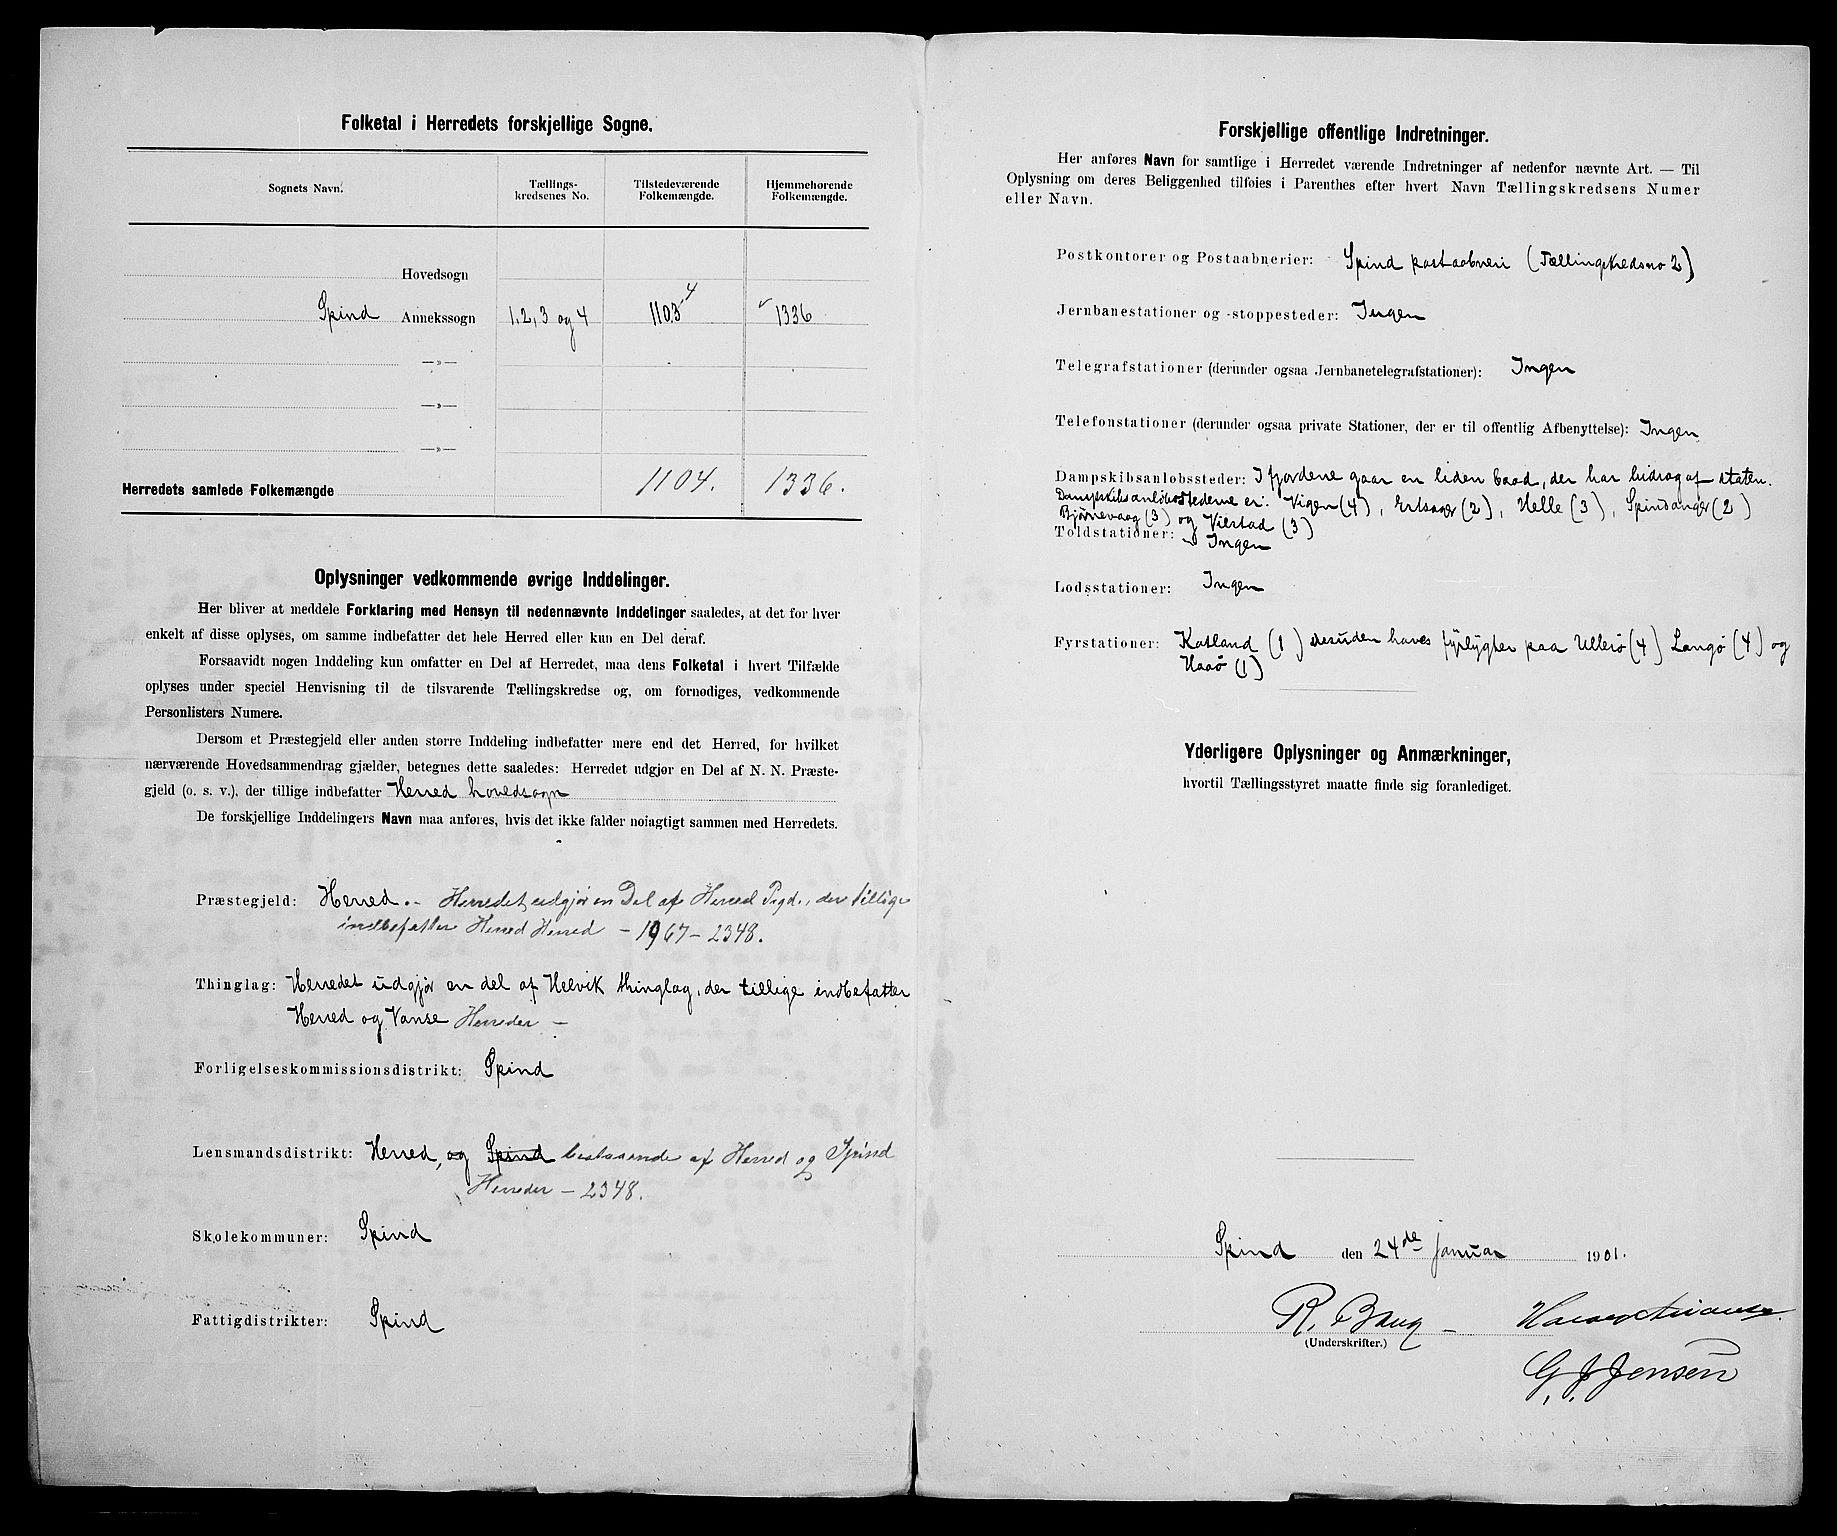 Folketal i Herredets forskjellige Sogne.
Sognets Navn.
Tællings-
kredsenes No.
Tilstedeværende
Folkemængde.
Hjemmehørende
Folkemængde.
Hovedsogn
Spind Annekssogn 1, 2, 3 og 4 1103 4 1336
—»—
—»—
—»—
Herredets samlede Folkemængde 1104. 1336.
Oplysninger vedkommende øvrige Inddelinger.
Her bliver at meddele Forklaring med Hensyn til nedennævnte Inddelinger saaledes, at det for hver
enkelt af disse oplyses, om samme indbefatter det hele Herred eller kun en Del deraf.
Forsaavidt nogen Inddeling kun omfatter en Del af Herredet, maa dens Folketal i hvert Tilfælde
oplyses under speciel Henvisning til de tilsvarende Tællingskredse og, om fornødiges, vedkommende
Personlisters Numere.
Dersom et Præstegjeld eller anden større Inddeling indbefatter mere end det Herred, for hvilket
nærværende Hovedsammendrag gjælder, betegnes dette saaledes: Herredet udgjør en Del af N. N. Præste-
gjeld (o. s. v.), der tillige indbefatter Herred hovedsogn
De forskjellige Inddelingers Navn maa anføres, hvis det ikke falder nøiagtigt sammen med Herredets.
Præstegjeld: Herred. — Herredet udgjør en Del af Herred Pgd., der tillige
indbefatter Herred Herred — 1967 — 2348.
Thinglag: Herredet udgjør en del af Helvik thinglag, der tillige indbefatter
Herred og Vanse Herreder —
Forligelseskommissionsdistrikt: Spind
Lensmandsdistrikt: Herred, og Spind bestaaende af Herred og Spind
Herreder — 2348.
Skolekommuner: Spind
Fattigdistrikter: Spind
Forskjellige offentlige Indretninger.
Her anføres Navn for samtlige i Herredet værende Indretninger af nedenfor nævnte Art. — Til
Oplysning om deres Beliggenhed tilføies i Parenthes efter hvert Navn Tællingskredsens Numer
eller Navn.
Postkontorer og Postaabnerier: Spind postaabneri (Tællingskredsno 2)
Jernbanestationer og -stoppesteder: Ingen
Telegrafstationer (derunder ogsaa Jernbanetelegrafstationer): Ingen
Telefonstationer (derunder ogsaa private Stationer, der er til offentlig Afbenyttelse): Ingen
Dampskibsanløbssteder: I fjordene gaar en liden baad, der har bidrag af staten.
Dampskibsanløbsstederne er: Vigen (4), (2), Helle (3), Spindanger (2)
Bjørnevaag (3) og Vierstad (3)
Toldstationer: Ingen
Lodsstationer: Ingen
Fyrstationer: Katland (1) desuden haves fyrlygter paa Ullerø (4) Langø (4) og
Haaø (1)
Yderligere Oplysninger og Anmærkninger,
hvortil Tællingsstyret maatte finde sig foranlediget.
Spind den 24de Januar 1901.
R. Baug —
(Underskrifter.)
G. J. Jensen